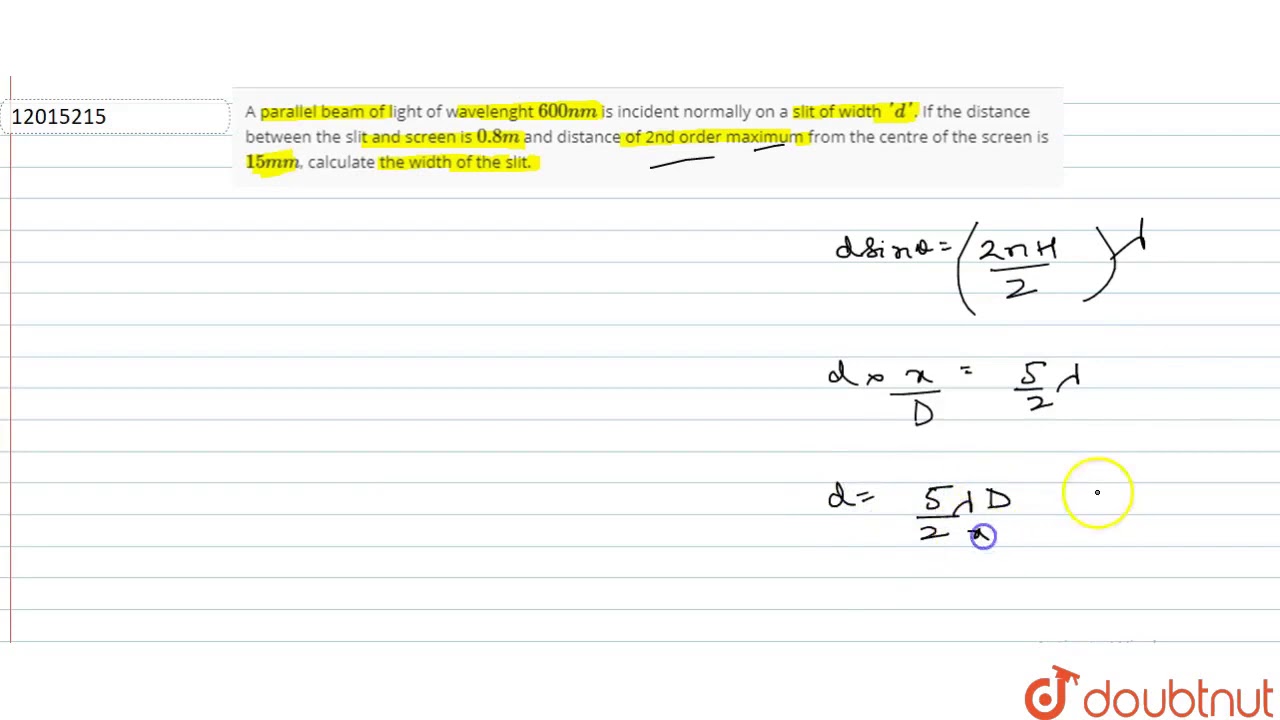 12015215
A parallel beam of light of wavelenght 600nm is incident normally on a slit of width 'd'. If the distance
between the slit and screen is 0.8m and distance of 2nd order maximum from the centre of the screen is
15mm, calculate the width of the slit.
d sin θ = (2n+1 / 2) λ
d × x / D = 5/2 λ
d = 5 λ D / 2 x
doubtnut